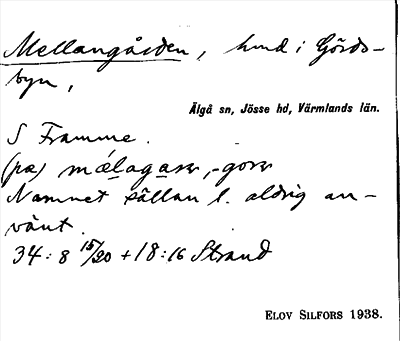 Mellangården, hmd i Görds-
byn,
Älgå sn, Jösse hd, Värmlands län.
S Framme.
(pa) mǽlagaṇ, -goṇ
Namnet sällan l. aldrig an-
vänt.
34:8 15/20 + 18:16 Strand
ELOV SILFORS 1938.